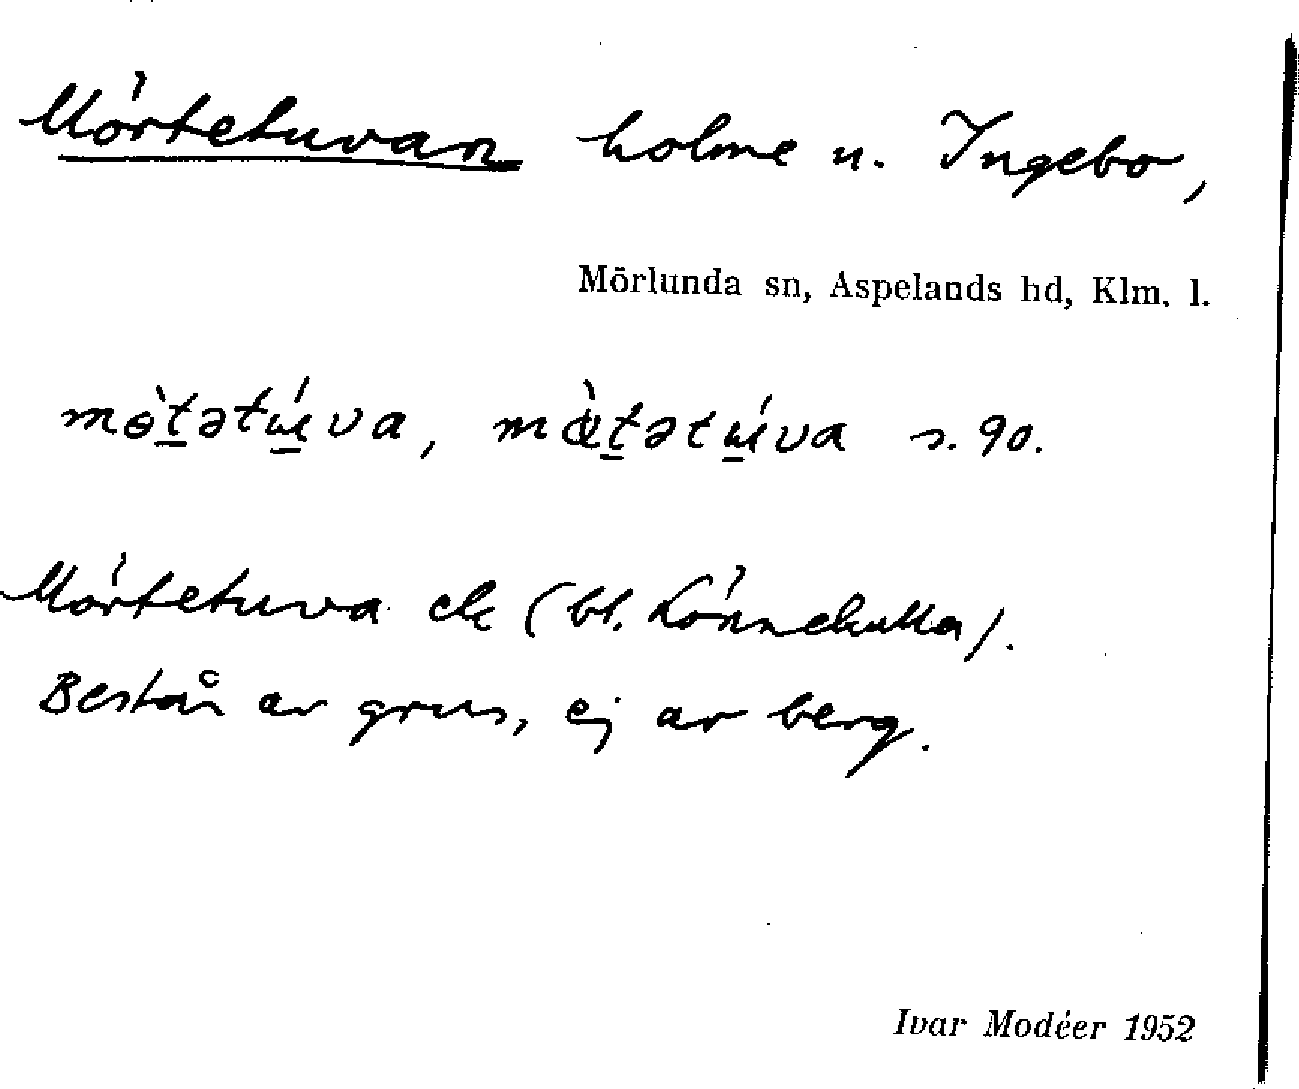 Mörtetuvan holme u. Ingebo,
Mörlunda sn, Aspelands hd, Klm. l.
s. 90.
Mörtetuva ek (bl. Lönnekulla).
Består av grus, ej av berg.
Ivar Modéer 1952